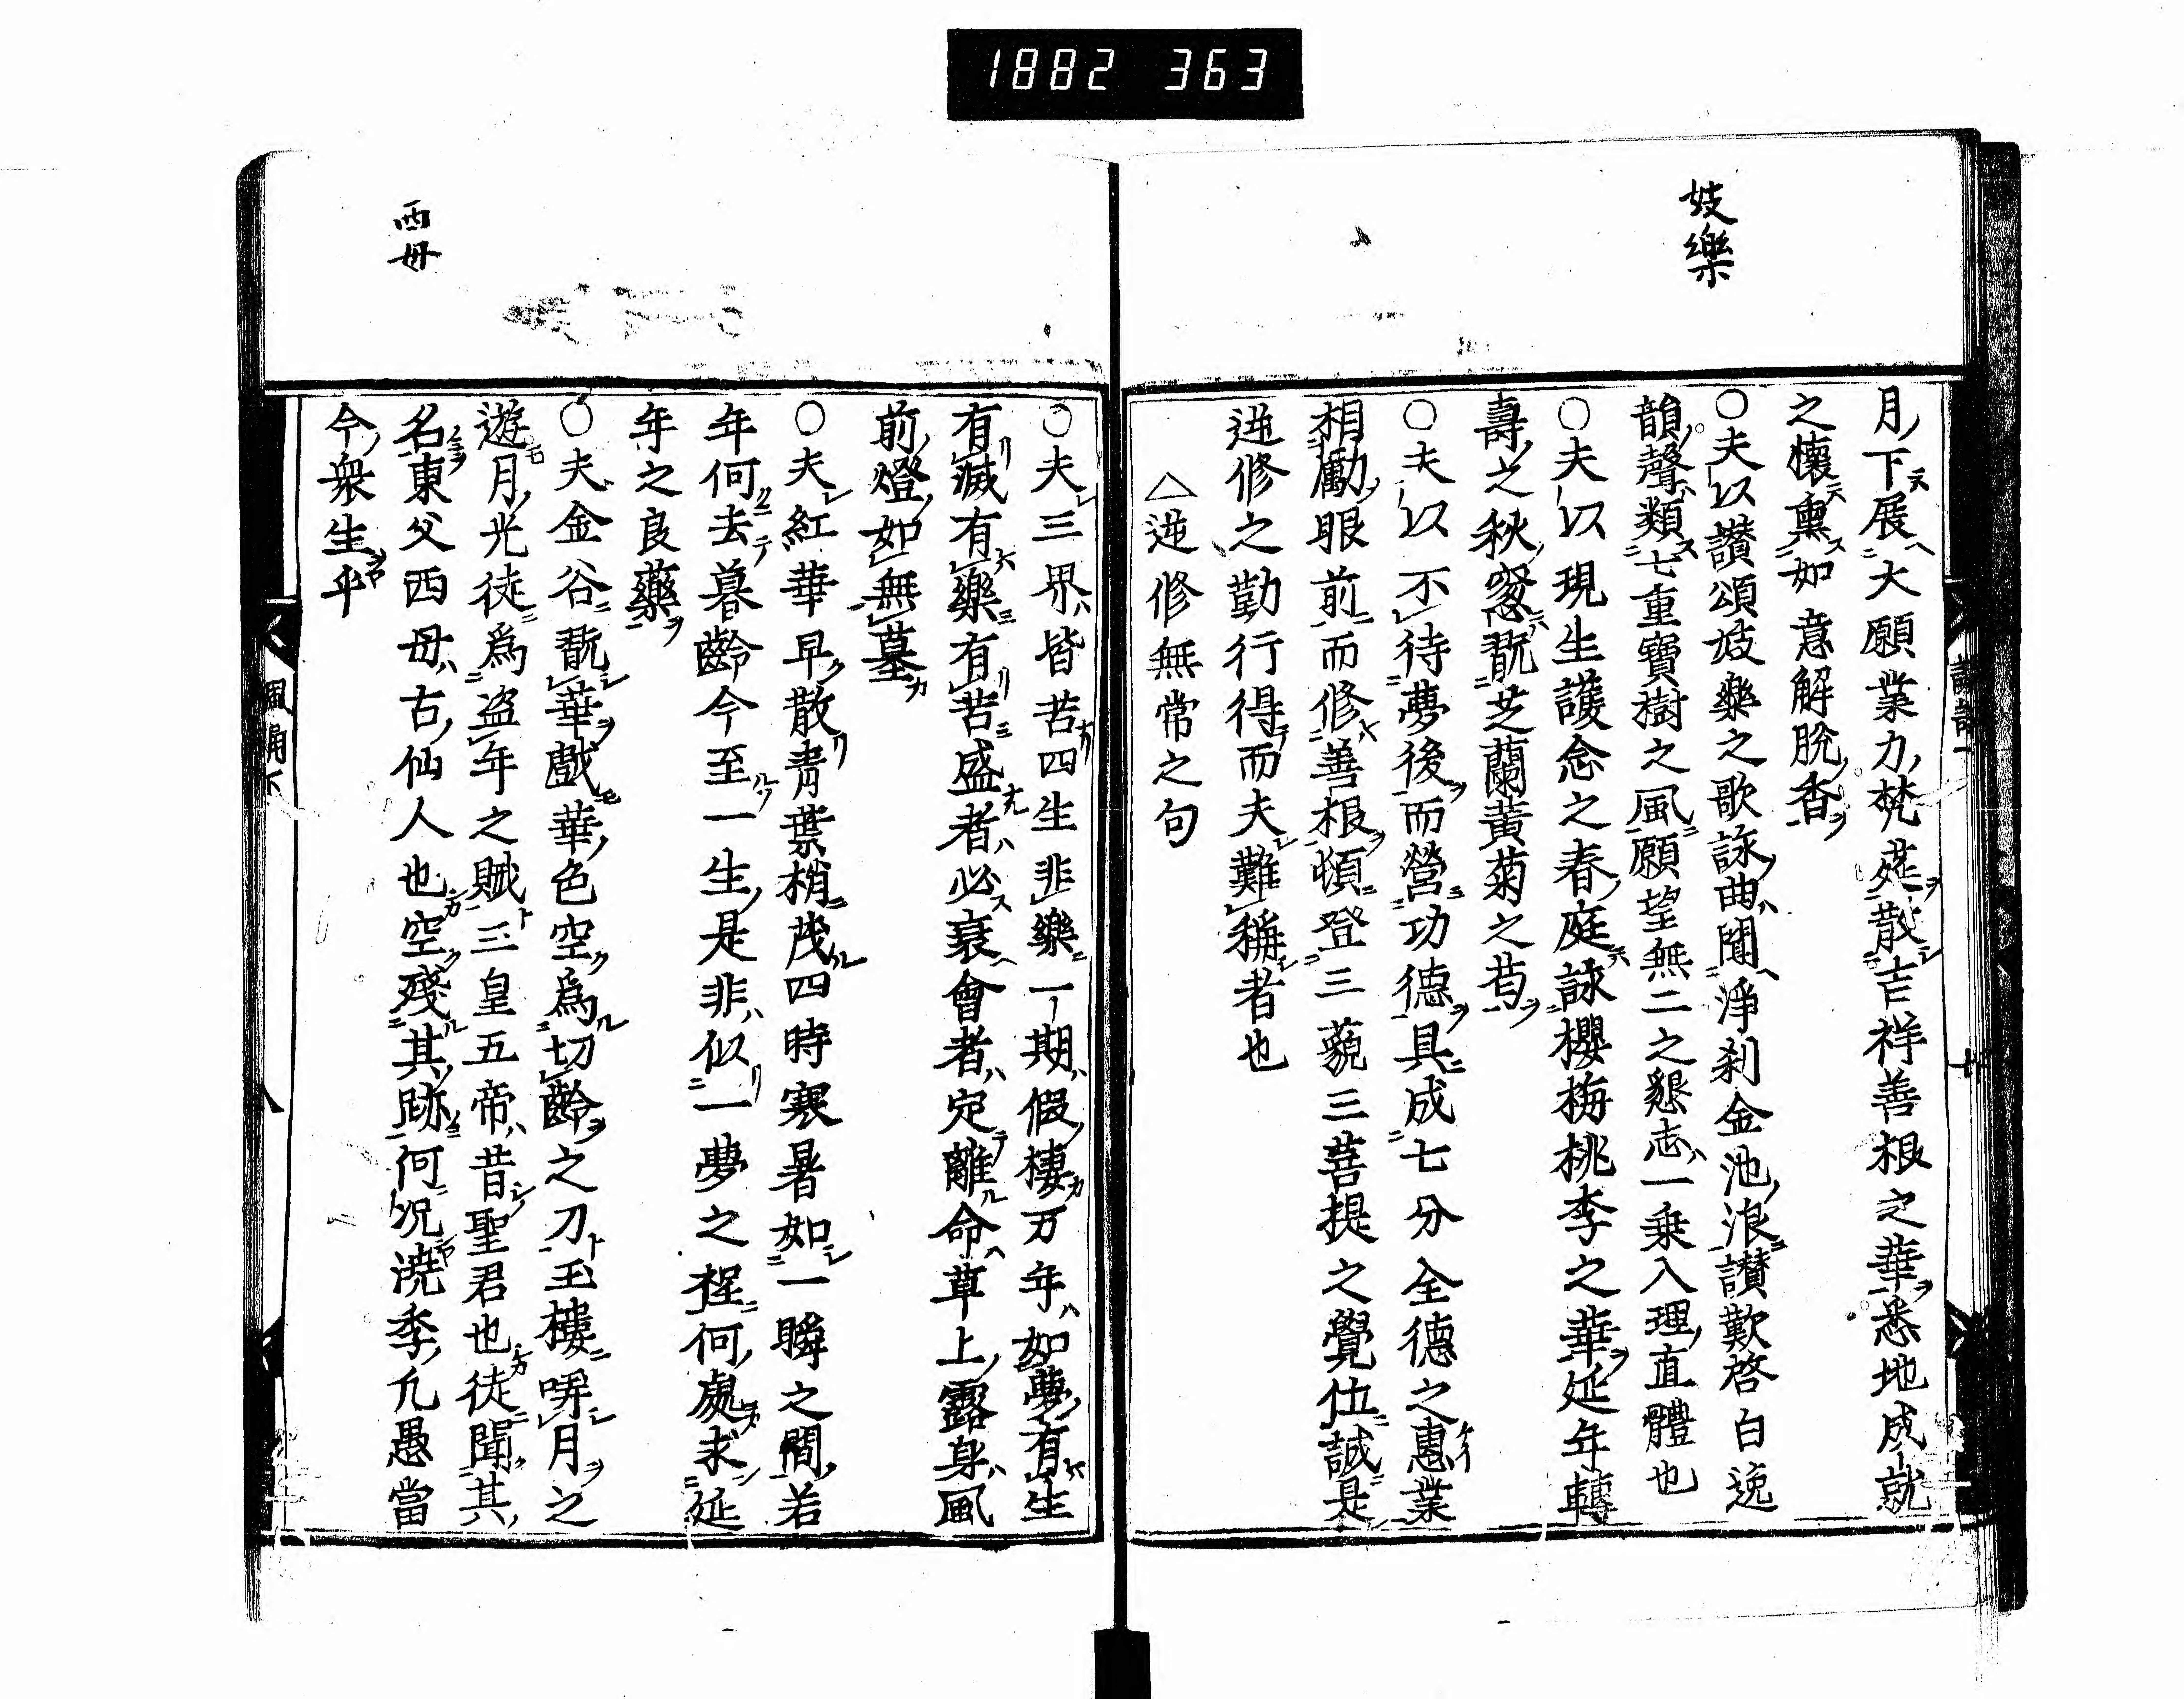 1882 363
妓樂
月下展大願業力梵莚散吉祥善根之華悉地成就
之懷熏如意解脫香
○夫以讚頌妓樂之歌詠曲聞淨刹金池浪讃歎啓白逸
韻聲類七重寶樹之風願望無二之懇志一乗入理直體也
○夫以現生護念之春庭詠櫻梅桃李之華延年轉
壽之秋窓翫芝蘭黃菊之匂
○夫以不待夢後而營功德具成七分全德之惠業
相勵眼前而修善根頓登三藐三菩提之覺位誠是
逆修之勤行得而夫難稱者也
△逆修無常之句
西母
○夫三界皆苦四生非樂一期假棲万年如夢有生
有滅有樂有苦盛者必衰會者定離命草上露身風
前燈如無墓
○夫紅華早散青葉梢茂四時寒暑如一瞬之間若
年何去暮齡今至一生是非似一夢之程何處求延
年之良藥
○夫金谷翫華戲華色空爲切齡之刀玉樓哢月之
遊月光徒爲盗年之賊三皇五帝昔聖君也徒聞其
名東父西母古仙人也空殘其跡何况澆季凢愚當
今衆生乎